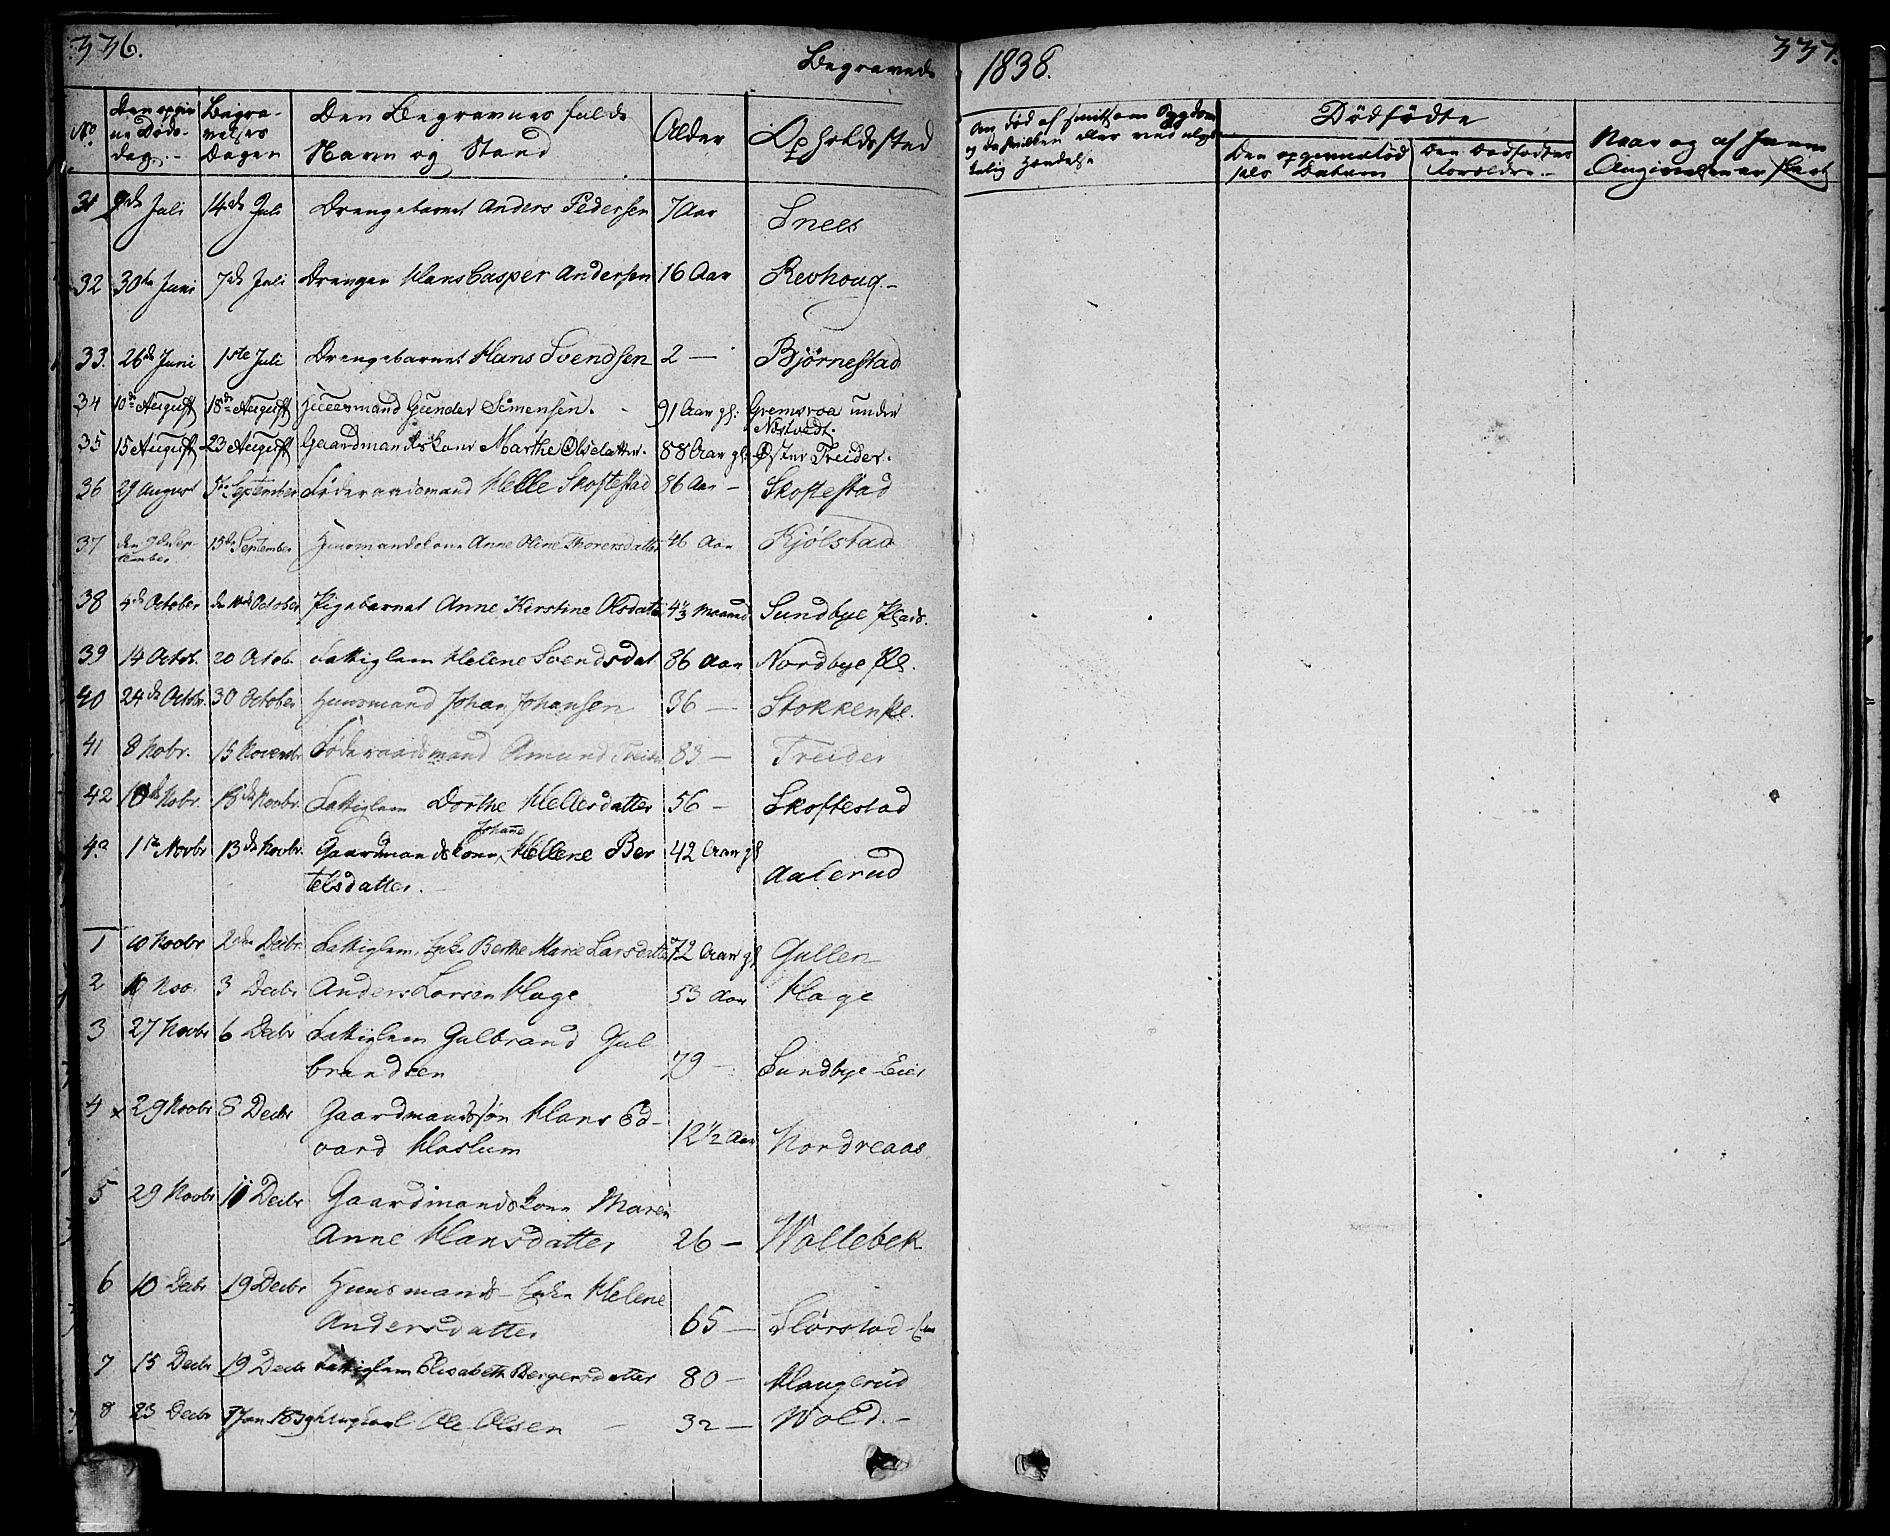 336.
Begravede
1838.
337.
No.
Den opgiv
ne Døds-
dag.
Begra-
velses
Dagen
Den Begravnes fulde
Navn og Stand
Alder
Opholdsstad
Om død af smitsom Sygdom
og da hvilken eller ved ulyk-
kelig Hændelse
Dødfødte
Den opgivne Fød
sels Datum
Den Dødfødtes
Forældre
Naar og af hvem
Angivelsen er skeet
31 9de Juli 14de Juli Drengebarnet Anders Pedersen 7 Aar Snees
32 30te Juni 7de Juli Drengen Hans Casper Andersen 16 Aar Revhoug.
33. 26de Juni 1ste Juli Drengebarnet Hans Svendsen 2 — Bjørnestad
34 10de August 18de August Huusmand Gunder Simensen. 91 Aar gl: Gremsroa under
Næstvedt.
35 15 August 23 August Gaardmandskone Marthe Olsdatter. 88 Aar gl: Øster Treider.
36 29 August 5te September Føderaadsmand Helle Skoftestad 86 Aar — Skoftestad
37 den 9de Sep-
tember 15de September Huusmandskone Anne Oline Thorersdatter 46 Aar Kjølstad
38 4de October October Pigebarnet Anne Kirstine Olsdatter 4⅓ Maaned Sundbye Plads.
39 14 Octob. 20 Octob. Fattiglem Helene Svendsdat 86 Aar Nordbye Pl.
40 24de Octbr. 30 October Huusmand Johan Johansen 36 — Stokkenpl.
41 8 Nobr. 15 Novembr Føderaadsmand Amund Treider 83 — Treider
42 10de Nobr. 18de Novbr. Fattiglem Dorthe Hellesdatter 56 — Skoftestad
43 1ste Novbr 13de Novbr. Gaardmandskone Johane Hellene Ber
telsdatter. 42 Aar gl Aalerud
1 20 Novbr 2den Decbr Fattiglem Enke Berthe Marie Larsdatter 72 Aar gl Gullen
2 Nov. 3 Decbr Anders Larsen Hage 53 Aar Hage
3 27 Novbr 6 Decbr Fattiglem Gulbrand Gul
brandsen 79 — Sundbye Eier
4 x 29 Novbr 8 Decbr Gaardmandssøn Hans Ed-
vard Haslum 12½ Aar Nordreaas
5 29 Novbr 11 Decbr Gaardmandskone Maren
Anne Hansdatter 26 — Wollebek
6 10 Decbr 19 Decbr Huusmands Enke Helene
Andersdatter 65 — Slørstad
7 15 Decbr 19 Decbr Fattiglem Elisabeth Bergersdatter 80 — Haugerud
8 23 Decbr Jan 1839 Ungkarl Ole Olsen 32 — Wold.